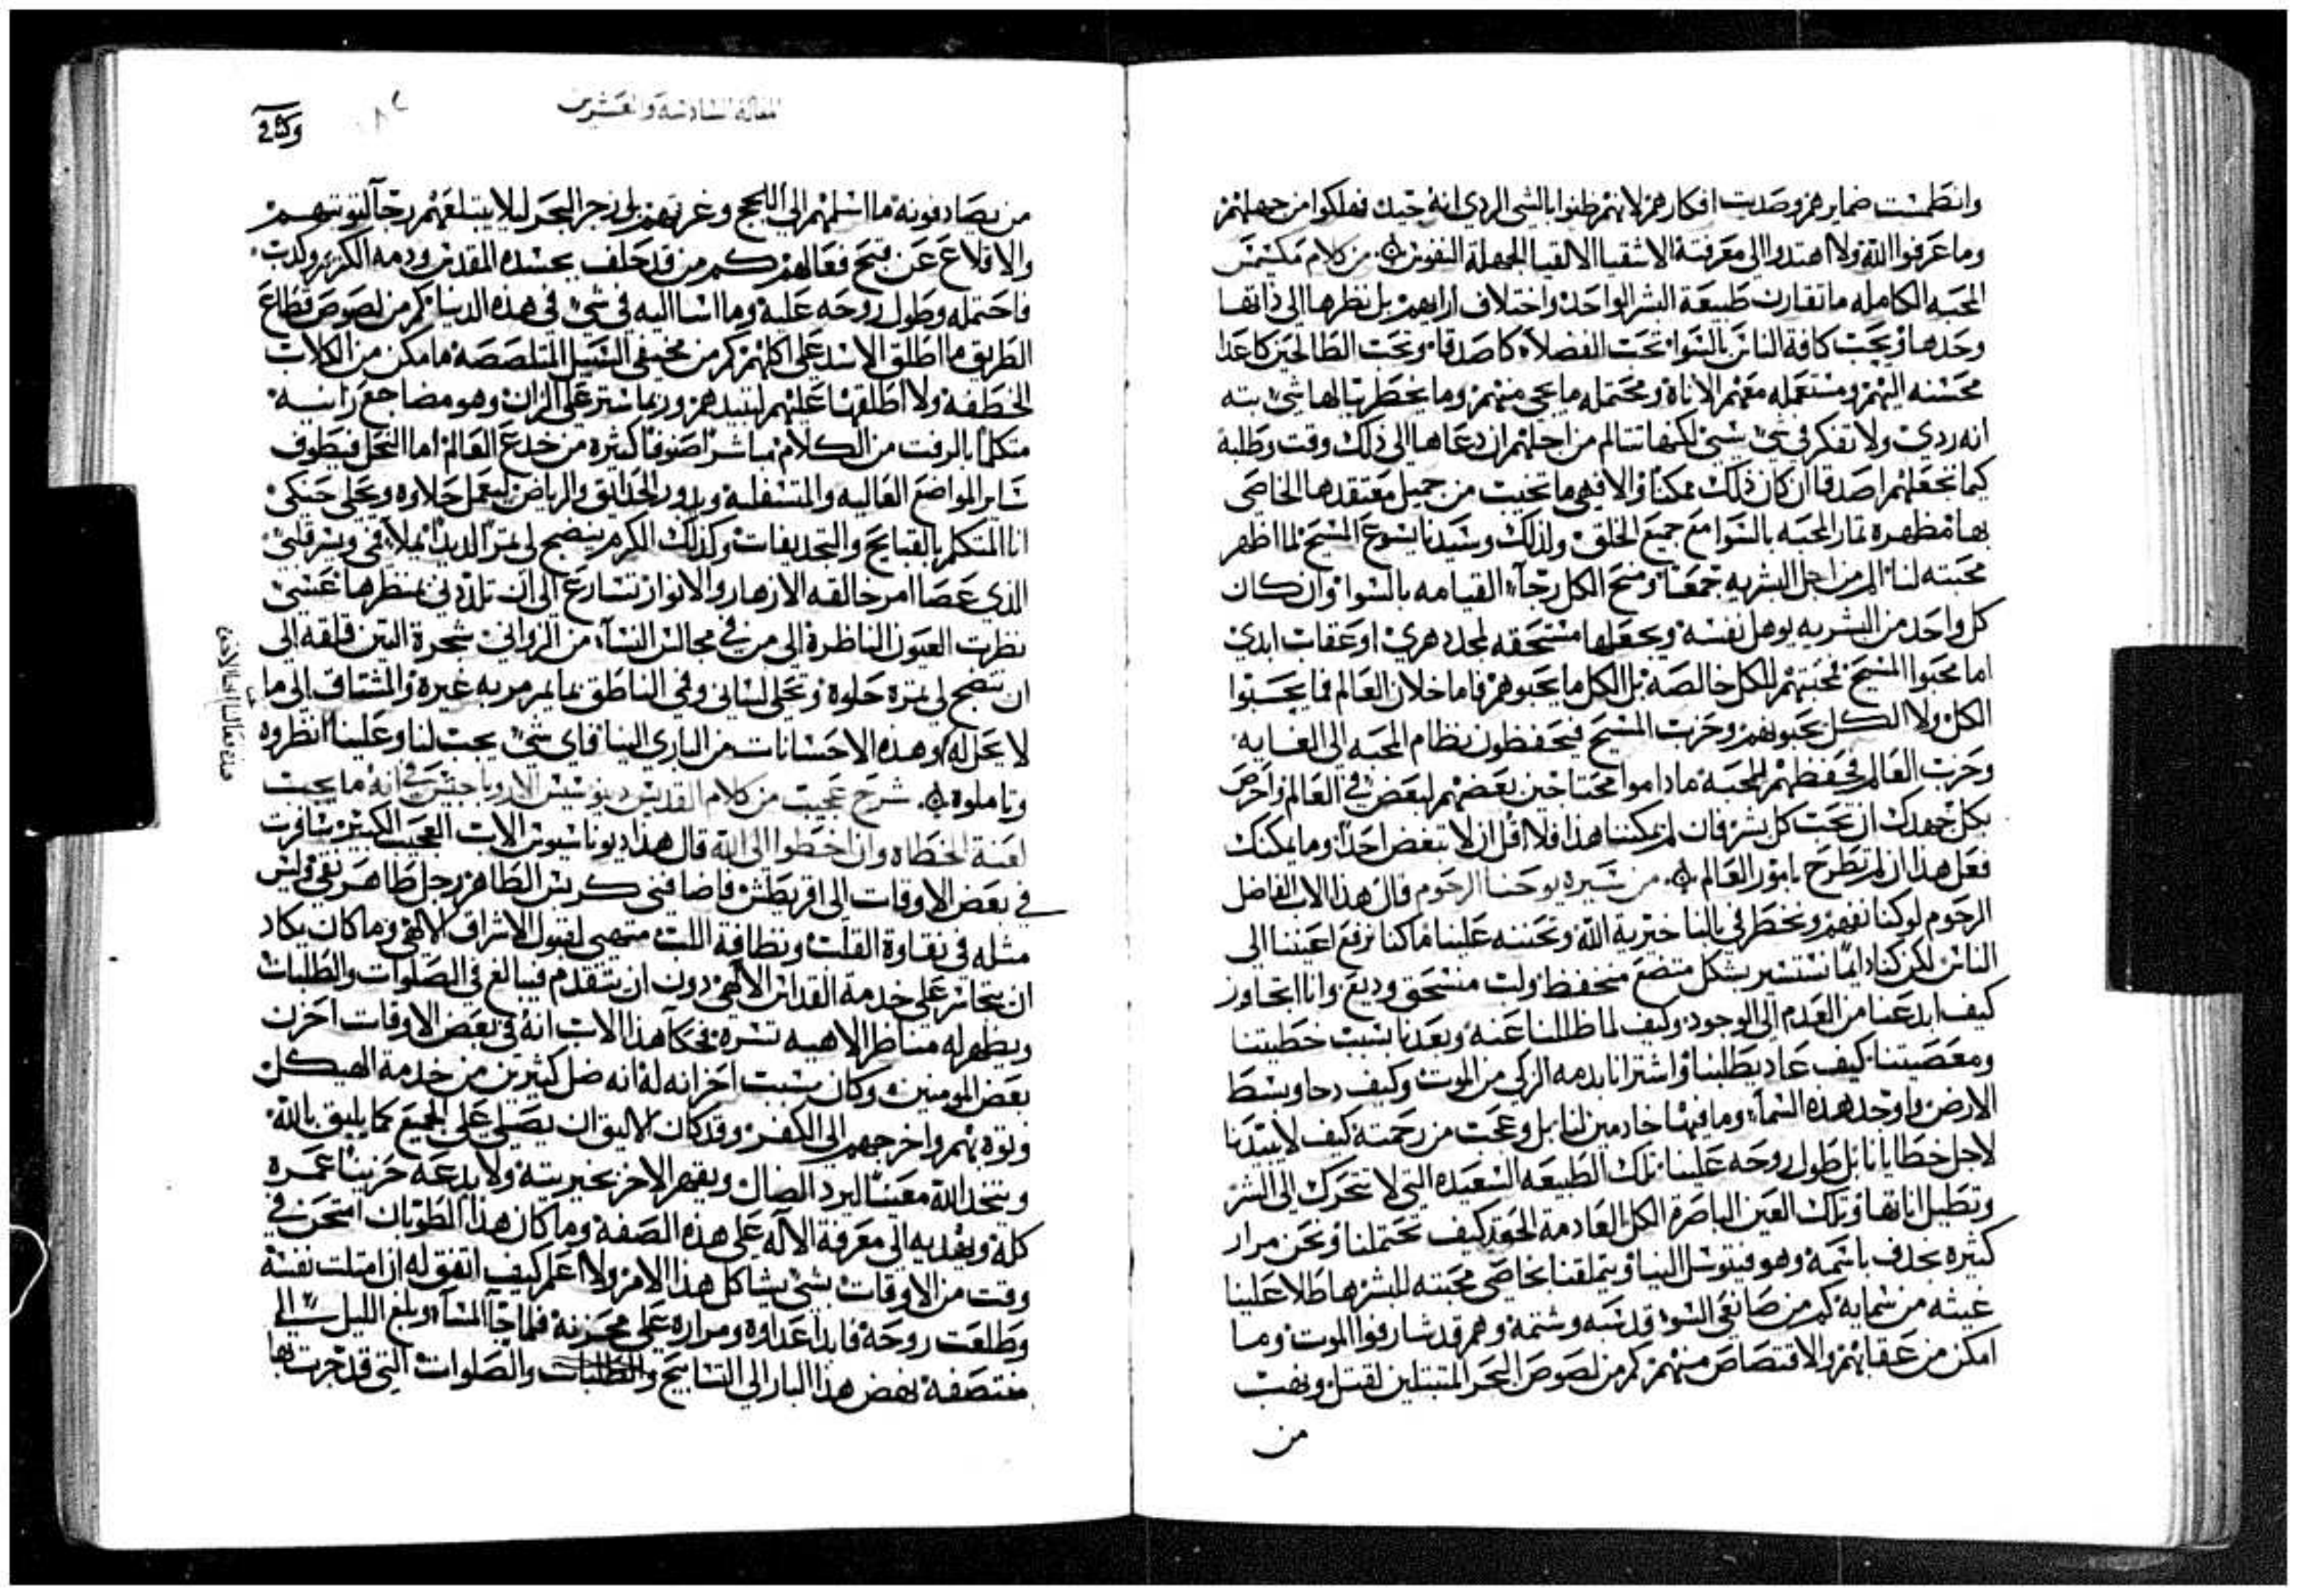 وانطمست ضمايرهم وصديت افكارهم لانهم ظنوا بالشي الردي انه جيد فهلكوا من جهلهم
وما عرفوا الله ولا اهتدوا الى معرفته الاشقيا الالقبا الجهلة النفوس من كلام مكسيمس
المحبه الكامله ما تقارن طبيعة البشر الواحده واختلاف ارايهم بل نظرها الى ذاتها
وحدها وتحب كافة الناس بالسوا تحب الفضلاء كاصدقا وتحب الطالحين كاعدا
محسنه اليهم ومستعمله معهم الاناة ومحتمله ما يجي منهم وما يخطر ببالها شي بته
انه ردي ولا تفكر في شي سي لكنها تتالم من اجلهم ان دعاها الى ذلك وقت وطلبه
كيما تجعلهم اصدقا ان كان ذلك ممكنا والا فهي ما تخيب من جميل معتقدها الخاصي
بها مظهرة ثمار المحبه بالسوا مع جميع الخلق ولذلك وسيدنا يسوع المسيح لما اظهر
محبته لنا الم من اجل البشريه جمعنا ومنح الكل رجاء القيامه بالسوا وان كان
كل واحد من البشريه يوهل نفسه ويجعلها مستحقه لمجد دهري او عقاب ابدي
اما محبوا المسيح فمحبتهم للكل خالصة بل الكل ما يحبوهم فاما خلان العالم فما يحبوا
الكل ولا الكل يحبونهم وحزب المسيح فيحفظون نظام المحبه الى الغايه
وحزب العالم فحفظهم للمحبة ما داموا محتاجين بعضهم لبعض في العالم واحرص
بكل جهدك ان تحب كل بشر فان لم يمكننا هذا فلا اقل ان لا تبغض احدا وما يمكنك
فعل هذا ان لم تطرح بامور العالم من سيرة يوحنا الرحوم قال هذا الاب الفاضل
الرحوم لو كنا نفهم ونخطر في بالنا خيرية الله وتحننه علينا ما كنا نرفع اعيننا الى
الناس لكن كنا دايما نستسير بشكل متضع منخفظ ولب منسحق وديع وانا اتجاوز
كيف ابدعنا من العدم الى الوجود وكيف لما ظللنا عنه وبعدنا بسبب خطيتنا
ومعصيتنا كيف عاد يطلبنا واشترانا بدمه الزكي من الموت وكيف دحا وبسط
الارض واوجد هذه السماء وما فيها خادمين لنا بل وعجب من رحمته كيف لا يبيدنا
لاجل خطايانا بل طول روحه علينا تلك الطبيعه السعيده التي لا تتحرك الى الشر
وتطيل اناتها وتلك العين الباصرة الكل العادمة الحقد كيف تحتملنا ونحن مرار
كثيره نجدف باسمه وهو فيتوسل الينا ويتملقنا بخاصي محبته للبشر هاطلا علينا
غيثه من سمايه كم من صانعي السو قد سبه وشتمه وهم قد شارفوا الموت وما
امكن من عقابهم والاقتصاص منهم كم من لصوص البحر المتبتلين لقتل ونهب
من
المقالة السادسة والعشرين
من يصادفونه ما اسلمهم الى اللجج وغرقهم بل زجر البحر ليلا يبتلعهم رجاء لتوبتهم
والاقلاع عن قبح فعالهم كم من قد حلف بجسده المقدس ودمه الكريم وكذب
فاحتمله وطول روحه عليه وما اسا اليه في شي في هذه الدنيا كم من لصوص قطاع
الطريق ما اطلق الاسد على اكلهم كم من مخيفي السبيل المتلصصة ما مكن من الكلاب
الخطفه ولا اطلقها عليهم لتبيدهم وربما ستر على الزان وهو مضاجع زانيه
متكلما بالرفث من الكلام مباشرا صنوفا كثيره من خدع العالم اما النحل فيطوف
ساير المواضع العاليه والمتسفلة ويدور الحدايق والرياض ليعمل حلاوه ويحلي حنكي
انا المتكلم بالقبايح والتجديفات وكذلك الكرم ينضج لي ثمرا لذيذا ليملأ فمي ويسر قلبي
الذي عصا امر خالقه الازهار والانوار تسارع الى ان تلذذني بمنظرها عسي
نظرت العيون الناظرة الى من في مجالس النساء من الزواني شجرة التين قلقه الى
ان تنضج لي ثمرة حلوة وتحلي لساني وفمي الناطق بما لم يرمر به غيره والمشتاق الى ما
لا يحل له وهذه الاحسانات من الباري الينا فاي شي يجب لنا وعلينا انظروه
وتاملوه شرح عجيب من كلام القديس ديونيسيوس الاريوباجيتس في انه ما يجب
لعنة الخطاه وان اخطوا الى الله قال هذا ديوناسيوس الاب العجيب الكبير سافرت
في بعض الاوقات الى اقريطش فاضافني كربس الطاهر رجل طاهر نقي وليس
مثله في نقاوة القلب ونظافة اللب متهيي لقبول الاشراق الالهي وما كان يكاد
ان يتجاسر على خدمة القداس الالهي دون ان يتقدم فيبالغ في الصلوات والطلبات
ويظهر له مناظر الاهيه تسره فحكا هذا الاب انه في بعض الاوقات احزن
بعض المومنين وكان سبب احزانه له انه ضل كثيرين من خدمة الهيكل
وتوه بهم واخرجهم الى الكفر وقد كان الاليق ان يصلي على الجميع كما يليق بالله
ويتخذ الله معينا ليرد الضال ويقهر الاخر بخيريته ولا يدعه حزينا عمره
كله ويهديه الى معرفة الاله على هذه الصفة وما كان هذا الطوبان امتحن في
وقت من الاوقات بشي يشاكل هذا الامر ولا اعلم كيف اتفق له ان امتلت نفسه
وطلعت روحه فابدا عداوة ومراره على محزنه فلما جاء المساء وبلغ الليل الى
منتصفه نهض هذا البار الى التسابيح والصلوات التي قد جرت بها